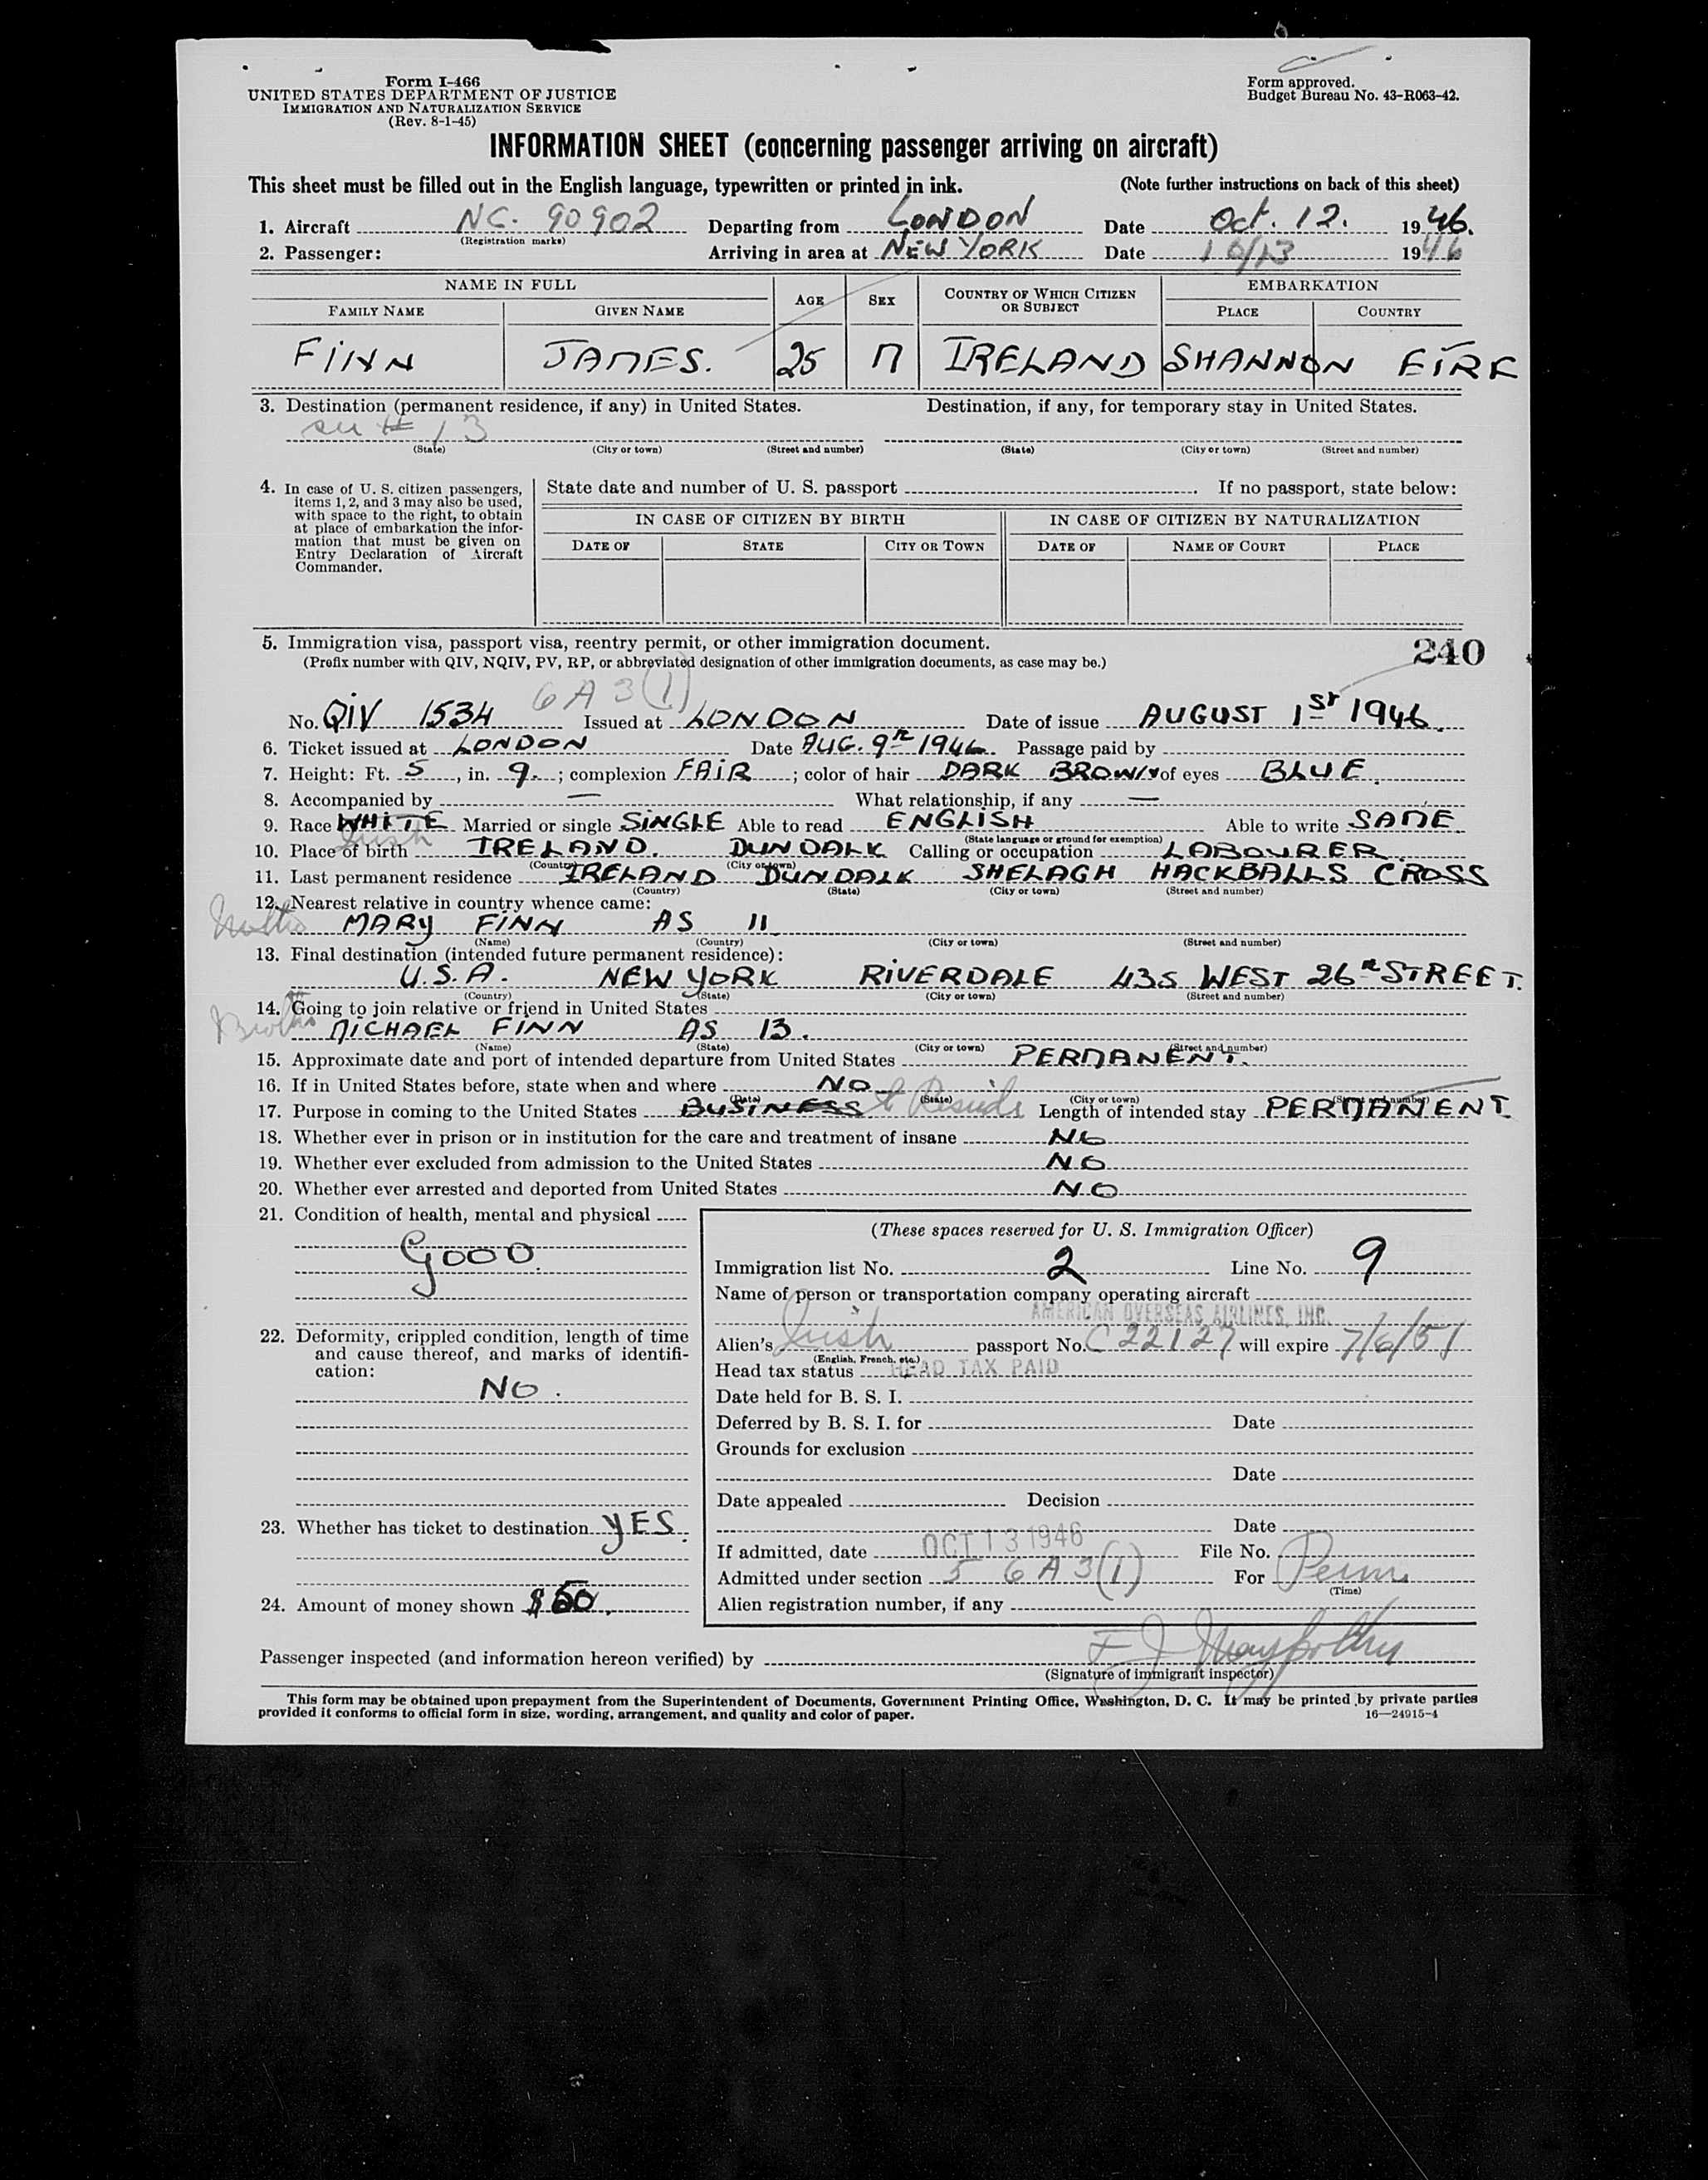 Form I-466
UNITED STATES DEPARTMENT OF JUSTICE
IMMIGRATION AND NATURALIZATION SERVICE
(Rev. 8-1-45)
Form approved.
Budget Bureau No. 43-R063-42.
INFORMATION SHEET (concerning passenger arriving on aircraft)
This sheet must be filled out in the English language, typewritten or printed in ink. (Note further instructions on back of this sheet)
1. Aircraft NC. 90902 Departing from LONDON Date Oct. 12. 1946.
(Registration marks)
2. Passenger: Arriving in area at NEW YORK Date 10/13 1946
NAME IN FULL AGE SEX COUNTRY OF WHICH CITIZEN OR SUBJECT EMBARKATION
FAMILY NAME GIVEN NAME PLACE COUNTRY
FINN JAMES. 25 M IRELAND SHANNON EIRE
3. Destination (permanent residence, if any) in United States. Destination, if any, for temporary stay in United States.
# 13
(State) (City or town) (Street and number) (State) (City or town) (Street and number)
4. In case of U. S. citizen passengers, items 1, 2, and 3 may also be used, with space to the right, to obtain at place of embarkation the information that must be given on Entry Declaration of Aircraft Commander.
State date and number of U. S. passport . If no passport, state below:
IN CASE OF CITIZEN BY BIRTH IN CASE OF CITIZEN BY NATURALIZATION
DATE OF STATE CITY OR TOWN DATE OF NAME OF COURT PLACE
5. Immigration visa, passport visa, reentry permit, or other immigration document. 240
(Prefix number with QIV, NQIV, PV, RP, or abbreviated designation of other immigration documents, as case may be.)
6 A 3 (1)
No. QIV 1534 Issued at LONDON Date of issue AUGUST 1ST 1946.
6. Ticket issued at LONDON Date AUG. 9th 1946. Passage paid by
7. Height: Ft. 5, in. 9.; complexion FAIR; color of hair DARK BROWN of eyes BLUE.
8. Accompanied by — What relationship, if any —
9. Race WHITE Irish Married or single SINGLE Able to read ENGLISH Able to write SAME
(State language or ground for exemption)
10. Place of birth IRELAND. DUNDALK Calling or occupation LABOURER
(Country) (City or town)
11. Last permanent residence IRELAND DUNDALK SHELAGH HACKBALLS CROSS
(Country) (State) (City or town) (Street and number)
12. Nearest relative in country whence came:
Mother MARY FINN AS 11
(Name) (Country) (City or town) (Street and number)
13. Final destination (intended future permanent residence):
U.S.A. NEW YORK RIVERDALE 435 WEST 26th STREET.
(Country) (State) (City or town) (Street and number)
14. Going to join relative or friend in United States
Brother MICHAEL FINN AS 13.
(Name) (State) (City or town) (Street and number)
15. Approximate date and port of intended departure from United States PERMANENT.
16. If in United States before, state when and where NO
(Date) (State) (City or town) (Street and number)
17. Purpose in coming to the United States BUSINESS to Reside Length of intended stay PERMANENT
18. Whether ever in prison or in institution for the care and treatment of insane NO
19. Whether ever excluded from admission to the United States NO
20. Whether ever arrested and deported from United States NO
21. Condition of health, mental and physical
GOOD.
22. Deformity, crippled condition, length of time and cause thereof, and marks of identification:
NO.
23. Whether has ticket to destination YES.
24. Amount of money shown $50.
(These spaces reserved for U. S. Immigration Officer)
Immigration list No. 2 Line No. 9
Name of person or transportation company operating aircraft
AMERICAN OVERSEAS AIRLINES, INC.
Alien's Irish passport No. C 22127 will expire 7/6/51
(English, French, etc.)
Head tax status HEAD TAX PAID
Date held for B. S. I.
Deferred by B. S. I. for Date
Grounds for exclusion
Date
Date appealed Decision
Date
If admitted, date OCT 13 1946 File No.
Admitted under section 5 6 A 3(1) For Perm.
(Time)
Alien registration number, if any
Passenger inspected (and information hereon verified) by
(Signature of immigrant inspector)
This form may be obtained upon prepayment from the Superintendent of Documents, Government Printing Office, Washington, D. C. It may be printed by private parties
provided it conforms to official form in size, wording, arrangement, and quality and color of paper. 16—24915-4